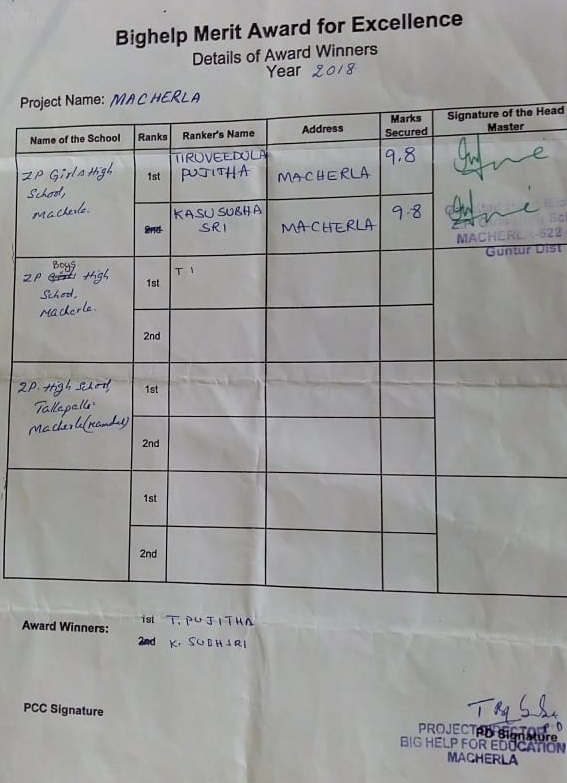 Bighelp Merit Award for Excellence
Details of Award Winners
Year 2018
Project Name: MACHERLA
Name of the School Ranks Ranker's Name Address Marks Secured Signature of the Head Master
ZP Girls High
School,
Macherla.
1st
TIRUVEEDULA
PUJITHA
MACHERLA
9.8
2nd
KASU SUBHA
SRI
MACHERLA
9.8
MACHERLA-522
Guntur Dist
Boys
ZP High
School,
Macherla.
1st
T I
2nd
ZP. High School,
Tallapalle
Macherla(Mandal)
1st
2nd
1st
2nd
Award Winners:
1st T. PUJITHA
2nd K. SUBHSRI
PCC Signature
PD Signature
PROJECT DIRECTOR
BIG HELP FOR EDUCATION
MACHERLA